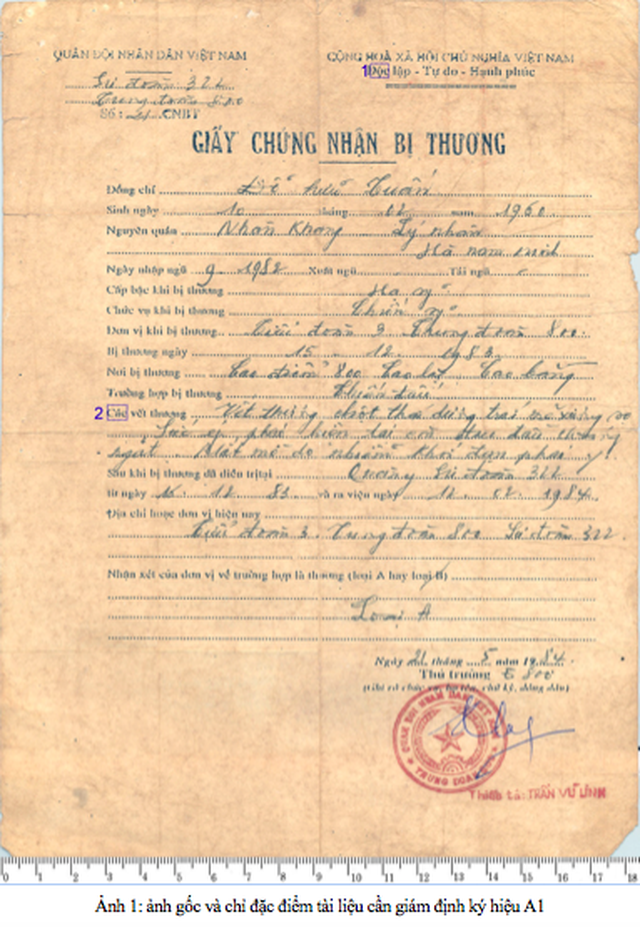 QUÂN ĐỘI NHÂN DÂN VIỆT NAM
Sư đoàn 322
Trung đoàn 800
Số: 21 CNBT
CỘNG HOÀ XÃ HỘI CHỦ NGHĨA VIỆT NAM
1 Độc lập - Tự do - Hạnh phúc
GIẤY CHỨNG NHẬN BỊ THƯƠNG
Đồng chí Đỗ hữu Tuấn
Sinh ngày 10 tháng 02 năm 1960
Nguyên quán Nhân Khang - Lý nhân
Hà nam ninh
Ngày nhập ngũ 9. 1982 Xuất ngũ Tái ngũ
Cấp bậc khi bị thương Hạ sỹ
Chức vụ khi bị thương Chiến sỹ
Đơn vị khi bị thương Tiểu đoàn 3 Trung đoàn 800
Bị thương ngày 15 - 12 - 1983
Nơi bị thương Cao điểm 800 Cao bằng
Trường hợp bị thương Chiến đấu
2 Các vết thương Vết thương
hiện tại còn đau đầu choáng
ngất
Sau khi bị thương đã điều trị tại Sư đoàn 322
từ ngày 15 12 83 và ra viện ngày 12 02 1984
Địa chỉ hoặc đơn vị hiện nay
Tiểu đoàn 3 Trung đoàn 800 Sư đoàn 322
Nhận xét của đơn vị về trường hợp là thương (loại A hay loại B)
Loại A
Ngày 21 tháng 5 năm 1984
Thủ trưởng E 800
(Ghi rõ chức vụ, họ tên, chữ ký, đóng dấu)
QUÂN ĐỘI NHÂN DÂN VIỆT NAM
TRUNG ĐOÀN
Thiếu tá: TRẦN VŨ LINH
0 1 2 3 4 5 6 7 8 9 10 11 12 13 14 15 16 17 18
Ảnh 1: ảnh gốc và chỉ đặc điểm tài liệu cần giám định ký hiệu A1